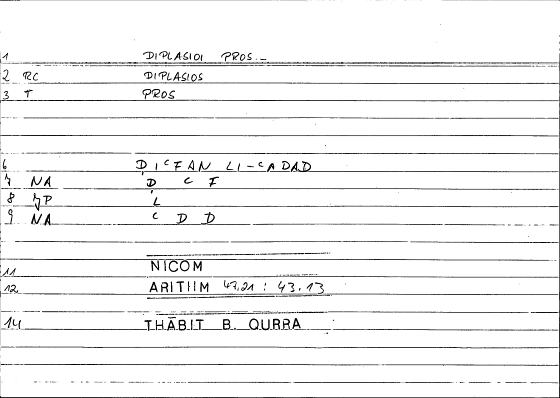 1 DIPLASIOI PROS
2 RC DIPLASIOS
3 T PROS
6 DICFAN LI-CADAD
7 NA D C F
8 L
9 NA C D D
11 NICOM
12 ARITHM 47.21 : 43.13
14 THĀBIT B. QURRA